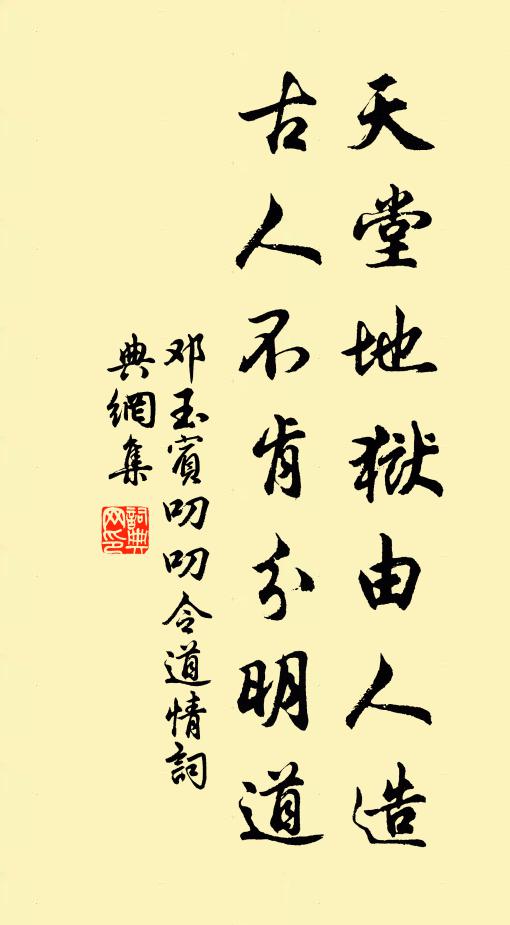 天堂地獄由人造
古人不肯分明道
邓玉賓叨叨令道情詞
典網集
詞典
网印